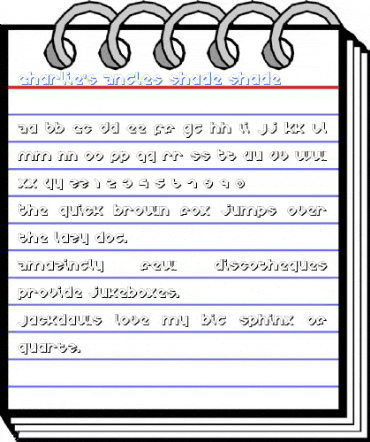 charlie's angles shade shade
aa bb cc dd ee ff gg hh ii jj kk ll
mm nn oo pp qq rr ss tt uu vv ww
xx yy zz 1 2 3 4 5 6 7 8 9 0
the quick brown fox jumps over
the lazy dog.
amazingly few discotheques
provide jukeboxes.
jackdaws love my big sphinx of
quartz.